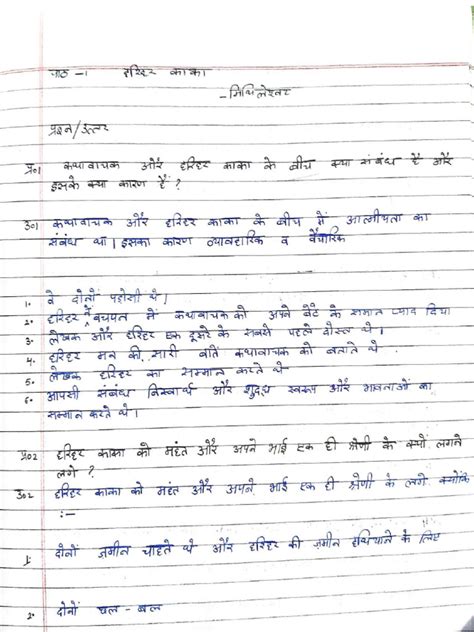 पाठ -1 हरिहर काका
- मिथिलेश्वर
प्रश्न/उत्तर
प्र01 कथावाचक और हरिहर काका के बीच क्या संबंध है और
इसके क्या कारण है ?
उ01 कथावाचक और हरिहर काका के बीच में आत्मीयता का
संबंध था। इसका कारण व्यावहारिक व वैचारिक
1. वे दोनों पड़ोसी थे।
2. हरिहर ने बचपन में कथावाचक को अपने बेटे के समान प्यार दिया
3. लेखक और हरिहर एक दूसरे के सबसे पहले दोस्त थे।
4. हरिहर मन की सारी बातें कथावाचक को बताते थे
5. लेखक हरिहर का सम्मान करते थे
6. आपसी संबंध निस्वार्थ और शुद्ध स्वरूप और भावनाओं का
सम्मान करते थे।
प्र02 हरिहर काका को महंत और अपने भाई एक ही श्रेणी के क्यों लगने
लगे ?
उ02 हरिहर काका को महंत और अपने भाई एक ही श्रेणी के लगे क्योंकि
:—
1. दोनों जमीन चाहते थे और हरिहर की ज़मीन हथियाने के लिए
2. दोनों छल - बल